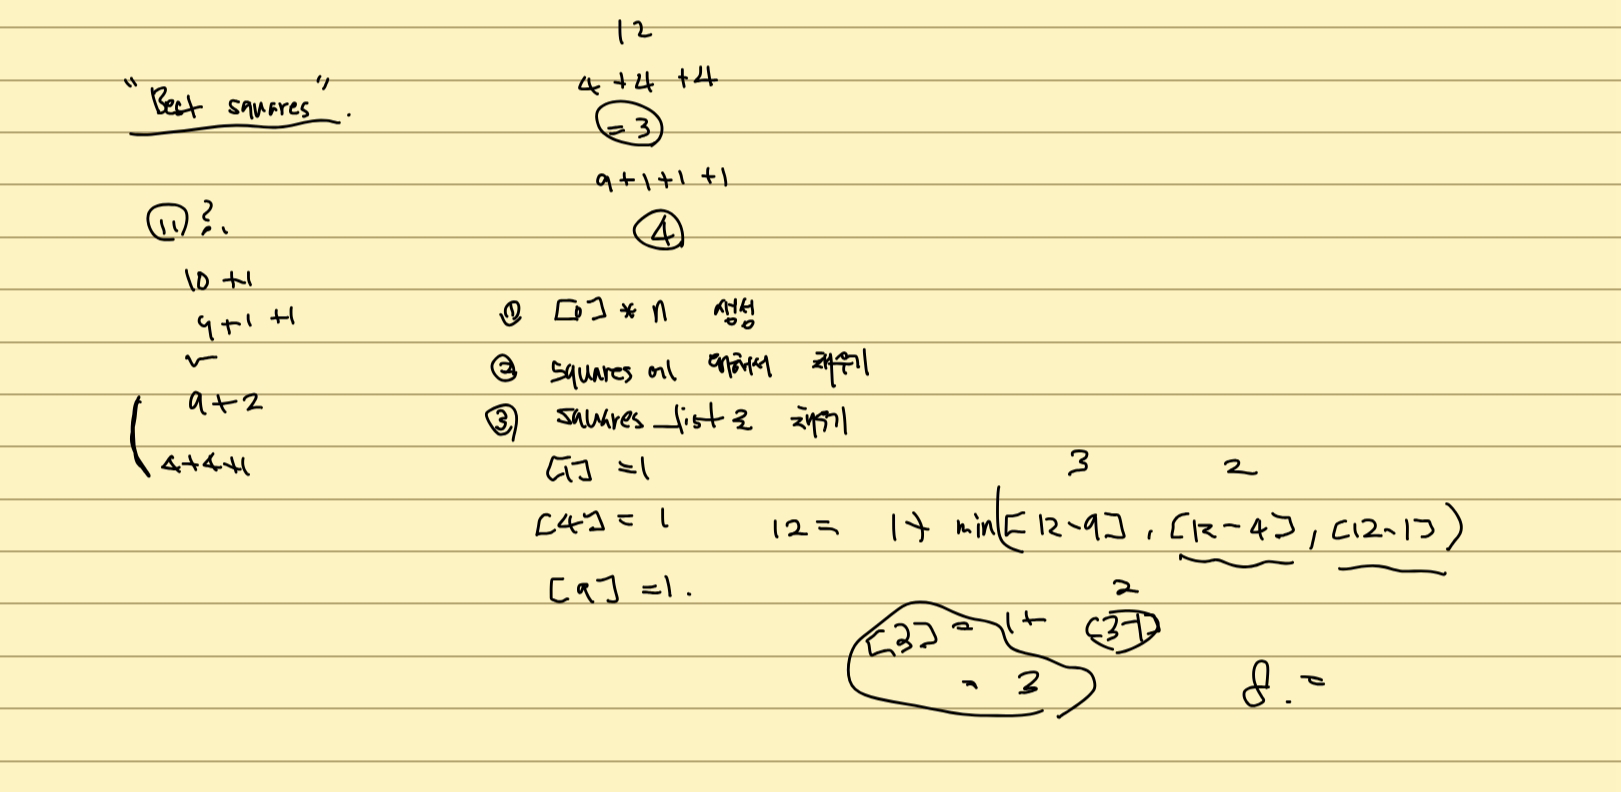 "Best squares".
⑪?.
10 +1
9+1 +1
✓
9+2
4+4+1
12
4 +4 +4
= 3
9+1+1 +1
④
① [0] * n 생성
② squares 에 채우기
③ squares_list 를
[1] =1
[4] = 1
[9] =1.
3 2
12= 1+ min([12-9], [12-4], [12-1])
2
[3] = 1+ [3-1]
= 3
8. =